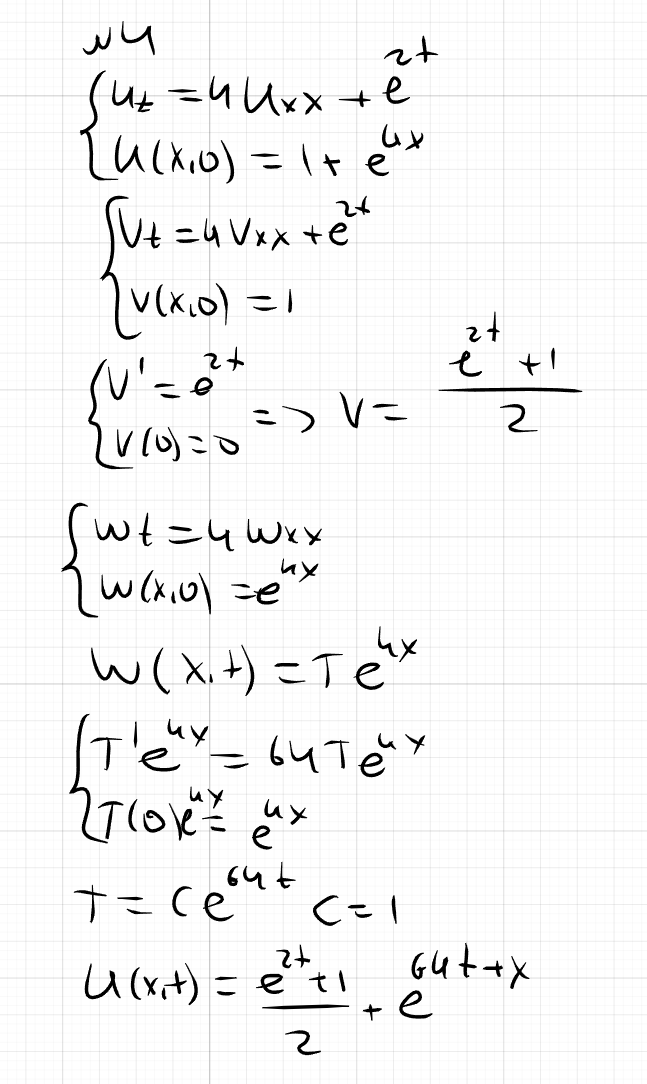 №4
{ u_t = 4 u_xx + e^{2t}
u(x,0) = 1 + e^{4x}
{ v_t = 4 v_xx + e^{2t}
v(x,0) = 1
{ v' = e^{2t}
v(0) = 0 => v = (e^{2t} + 1)/2
{ w_t = 4 w_xx
w(x,0) = e^{4x}
w(x,t) = T e^{4x}
{ T' e^{4x} = 64 T e^{4x}
T(0) e^{4x} = e^{4x}
T = C e^{64t} C = 1
u(x,t) = (e^{2t} + 1)/2 + e^{64t+x}